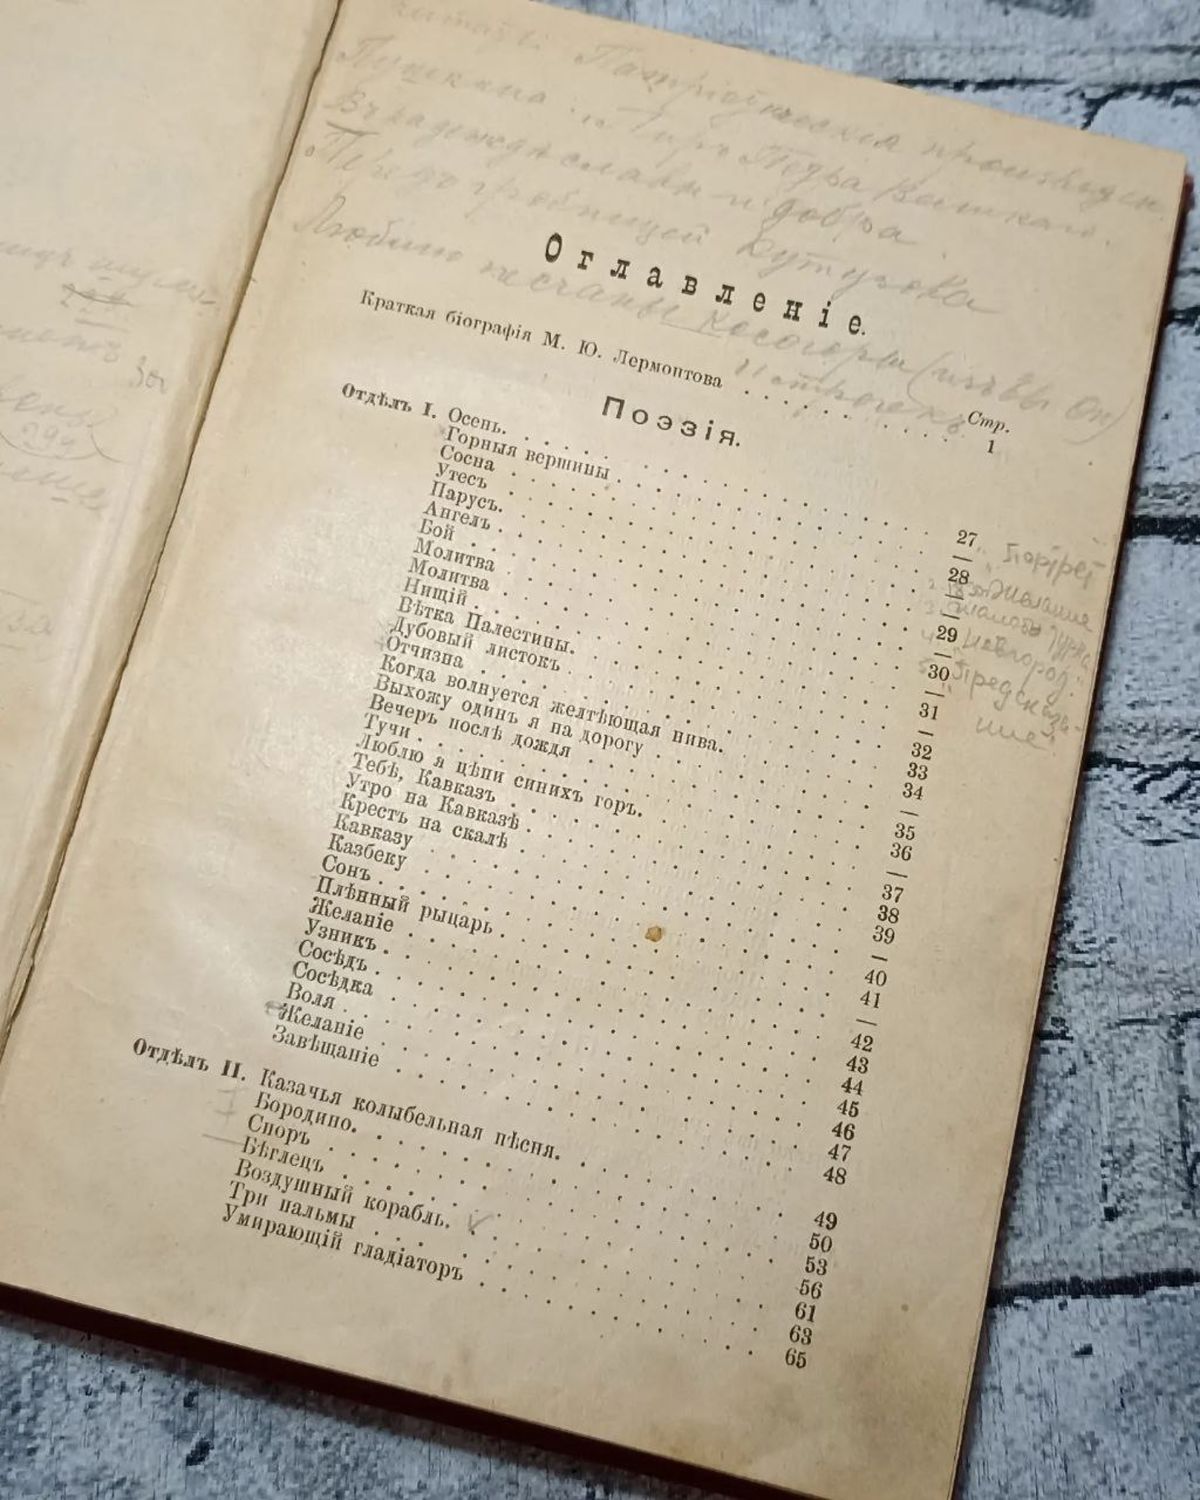 читать: Патріотическія произведен.
Пушкина: Пиръ Петра Великаго.
Въ надеждѣ славы и добра
Передъ гробницей Кутузова
Люблю песчаный косогоръ (изъ Евг Он)
Оглавленіе.
Стр.
Краткая біографія М. Ю. Лермонтова . . . . . . . . . . 1
Поэзія.
Отдѣлъ I. Осень. . . . . . . . . . . 27
Горныя вершины . . . . . . . . . . —
Сосна . . . . . . . . . . 28
Утесъ . . . . . . . . . . —
Парусъ. . . . . . . . . . 29
Ангелъ . . . . . . . . . . —
Бой . . . . . . . . . . 30
Молитва . . . . . . . . . . —
Молитва . . . . . . . . . . 31
Нищій . . . . . . . . . . —
Вѣтка Палестины. . . . . . . . . . 32
Дубовый листокъ . . . . . . . . . . 33
Отчизна . . . . . . . . . . 34
Когда волнуется желтѣющая нива. . . . . . —
Выхожу одинъ я на дорогу . . . . . . . 35
Вечеръ послѣ дождя . . . . . . . . 36
Тучи . . . . . . . . . . —
Люблю я цѣпи синихъ горъ. . . . . . . . 37
Тебѣ, Кавказъ . . . . . . . . . . 38
Утро на Кавказѣ . . . . . . . . . . 39
Крестъ на скалѣ . . . . . . . . . . —
Кавказу . . . . . . . . . . 40
Казбеку . . . . . . . . . . 41
Сонъ . . . . . . . . . . —
Плѣнный рыцарь . . . . . . . . . . 42
Желаніе . . . . . . . . . . 43
Узникъ . . . . . . . . . . 44
Сосѣдъ . . . . . . . . . . 45
Сосѣдка . . . . . . . . . . 46
Воля . . . . . . . . . . 47
Желаніе . . . . . . . . . . 48
Завѣщаніе . . . . . . . . . . 49
Отдѣлъ II. Казачья колыбельная пѣсня. . . . . . . . 50
Бородино. . . . . . . . . . 53
Споръ . . . . . . . . . . 56
Бѣглецъ . . . . . . . . . . 61
Воздушный корабль. . . . . . . . . . 63
Три пальмы . . . . . . . . . . 65
Умирающій гладіаторъ . . . . . . . .
Портрет
Желание
2
3 Жалобы Турка
4 "Новгород"
5 "Предсказа-
ние"
299